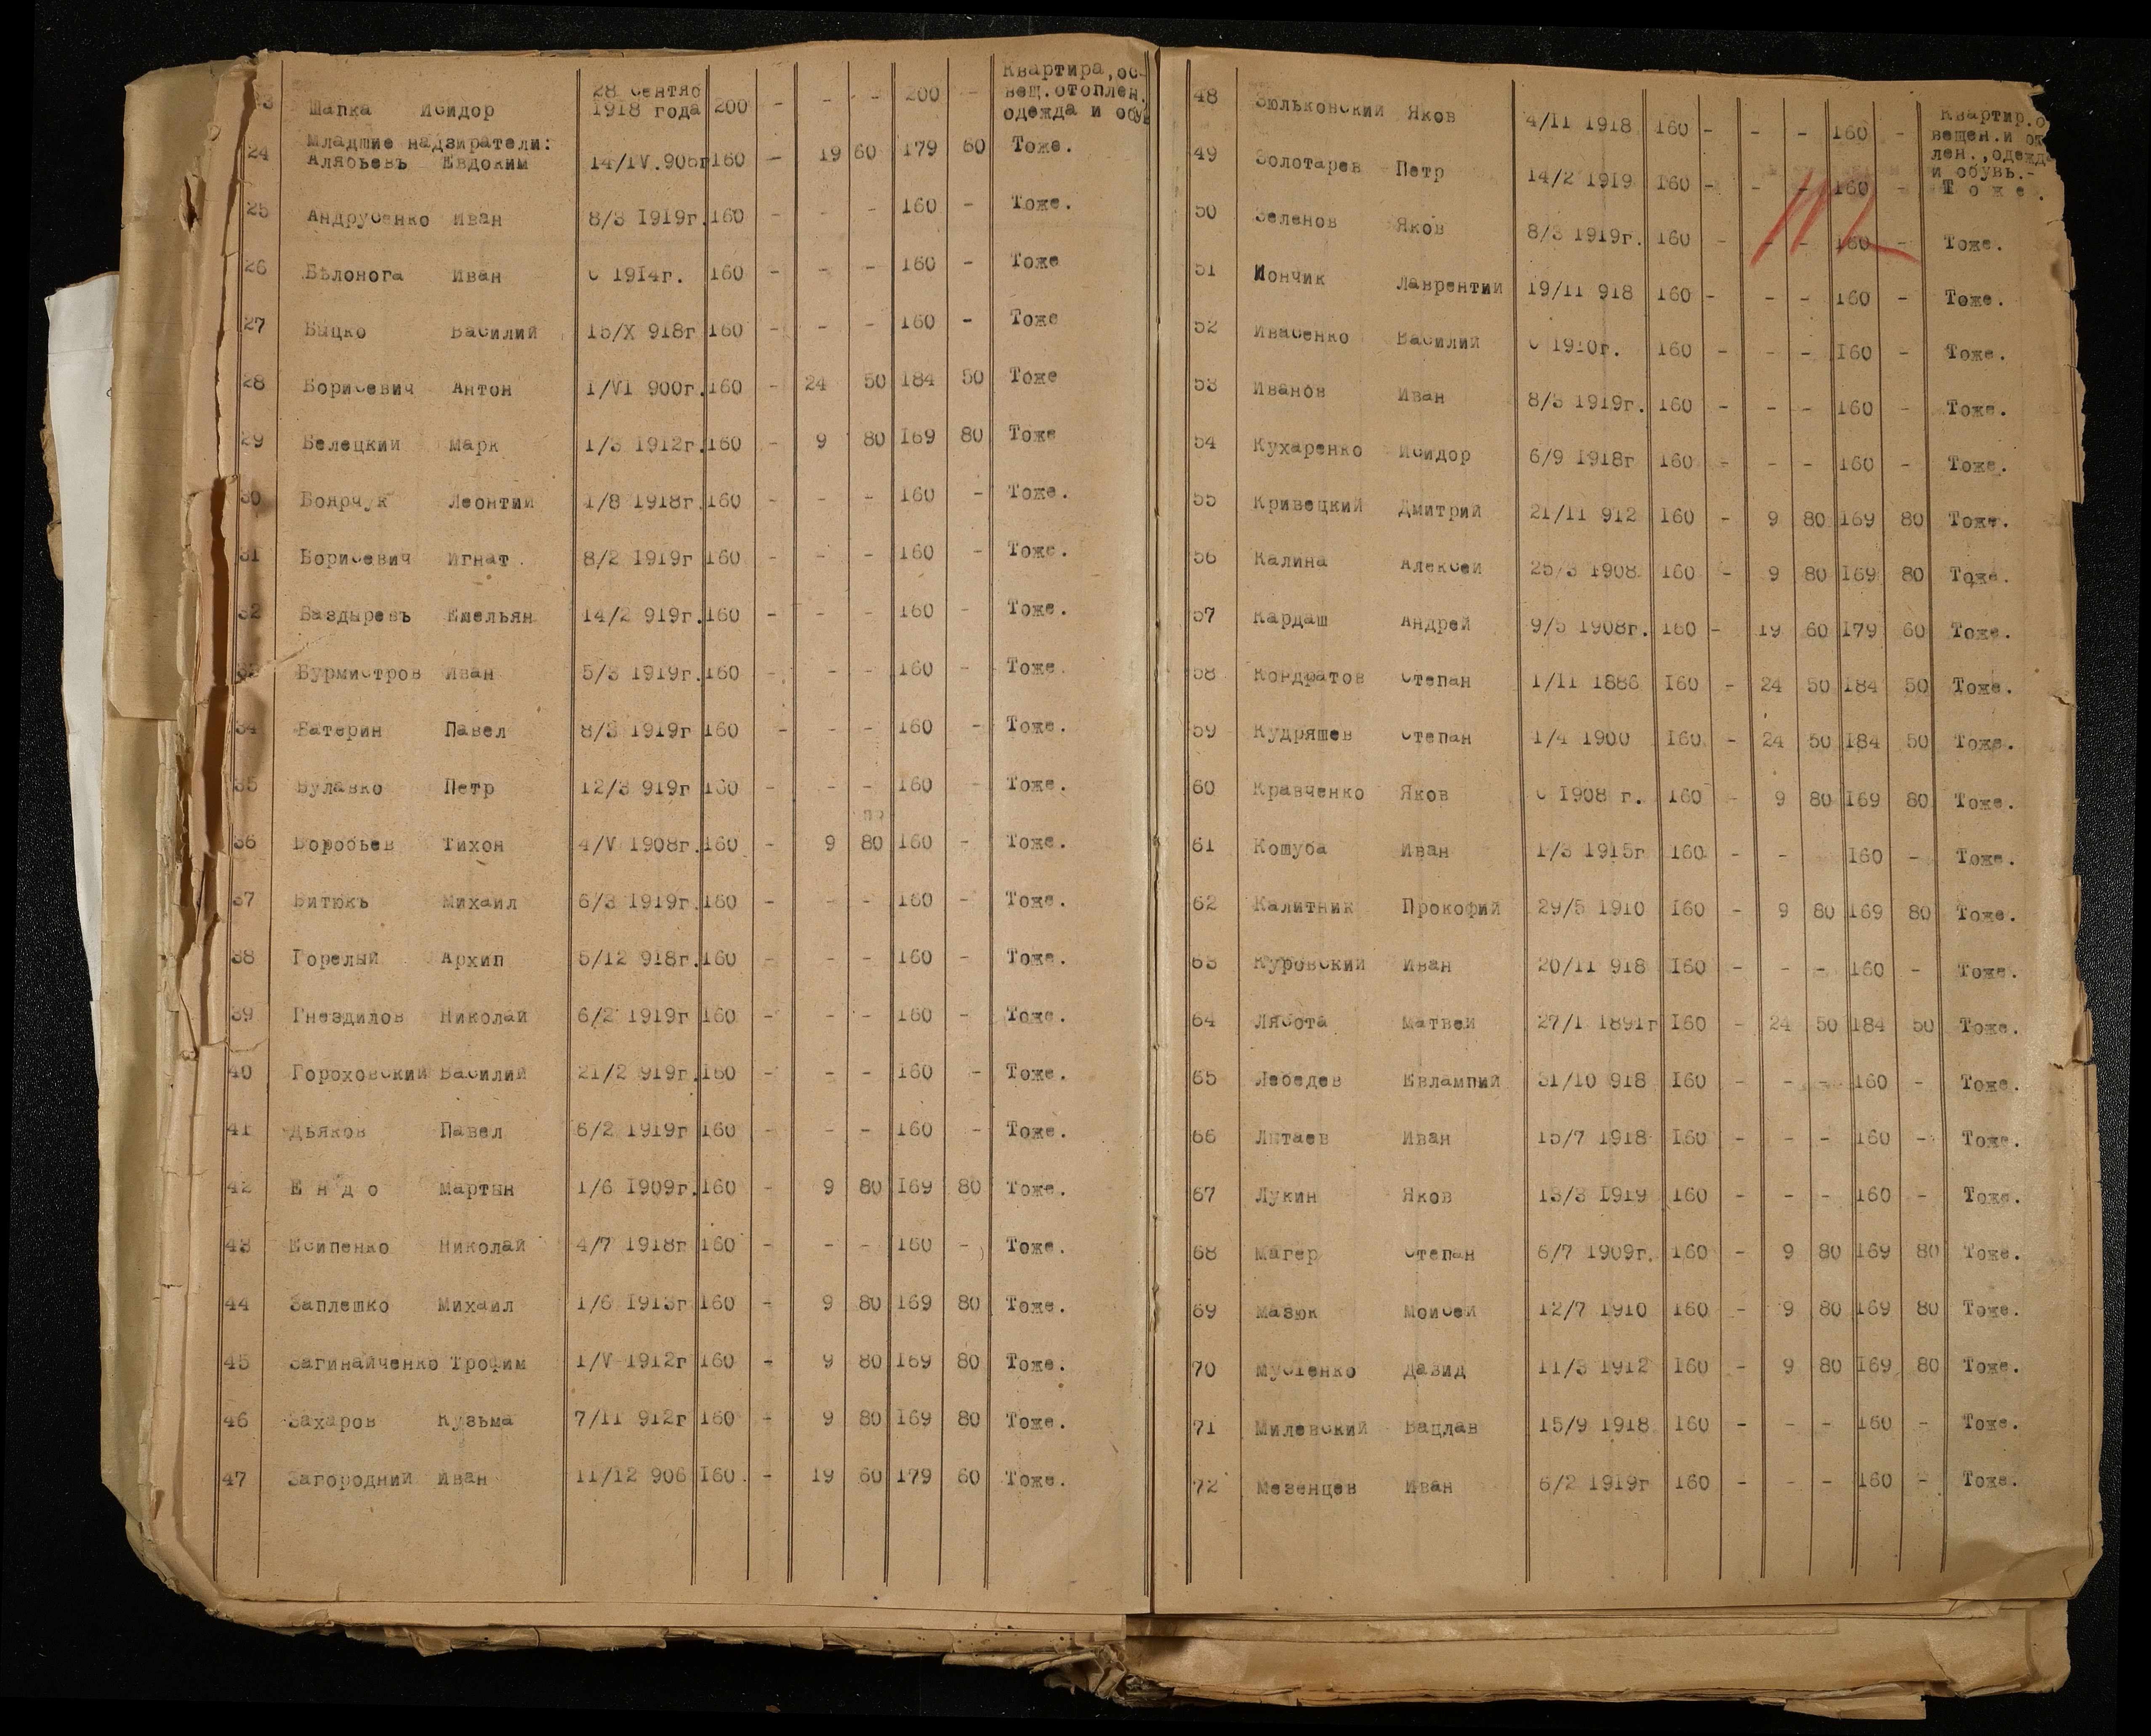 Квартира, ос-
28 сентяб вещ. отоплен.
Шапка Исидор 1918 года 200 - - - 200 - одежда и обу
Младшие надзиратели:
24 Алябьевъ Евдоким 14/IV.906г 160 - 19 60 179 60 Тоже.
25 Андрусенко Иван 8/3 1919г. 160 - - - 160 - Тоже.
26 Бѣлонога Иван с 1914г. 160 - - - 160 - Тоже
27 Быцко Василий 15/X 918г 160 - - - 160 - Тоже
28 Борисевич Антон 1/VI 900г. 160 - 24 50 184 50 Тоже
29 Белецкий Марк 1/3 1912г. 160 - 9 80 169 80 Тоже
30 Боярчук Леонтий 1/8 1918г. 160 - - - 160 - Тоже.
31 Борисевич Игнат. 8/2 1919г 160 - - - 160 - Тоже.
32 Баздыревъ Емельян 14/2 919г. 160 - - - 160 - Тоже.
33 Бурмистров Иван 5/3 1919г. 160 - - - 160 - Тоже.
34 Ватерин Павел 8/3 1919г 160 - - - 160 - Тоже.
35 Булавко Петр 12/3 919г 160 - - - 160 - Тоже.
36 Воробьев Тихон 4/V 1908г. 160 - 9 80 160 - Тоже.
37 Витюкъ Михаил 6/3 1919г. 160 - - - 160 - Тоже.
38 Горелый Архип 5/12 918г. 160 - - - 160 - Тоже.
39 Гнездилов Николай 6/2 1919г 160 - - - 160 - Тоже.
40 Гороховский Василий 21/2 919г. 160 - - - 160 - Тоже.
41 Дьяков Павел 6/2 1919г 160 - - - 160 - Тоже.
42 Е н д о Мартын 1/6 1909г. 160 - 9 80 169 80 Тоже.
43 Есипенко Николай 4/7 1918г 160 - - - 160 - Тоже.
44 Заплешко Михаил 1/6 1913г 160 - 9 80 169 80 Тоже.
45 Загинайченко Трофим 1/V 1912г 160 - 9 80 169 80 Тоже.
46 Захаров Кузьма 7/11 912г 160 - 9 80 169 80 Тоже.
47 Загородний Иван 11/12 906 160 - 19 60 179 60 Тоже.
48 Зюльконский Яков 4/11 1918 160 - - - 160 - Квартир. о
вещен. и от
лен., одежд
и обувь.-
49 Золотарев Петр 14/2 1919 160 - - - 160 - Т о ж е.
50 Зеленов Яков 8/3 1919г. 160 - - - 160 - Тоже.
51 Иончик Лаврентий 19/11 918 160 - - - 160 - Тоже.
52 Ивасенко Василий с 1910г. 160 - - - 160 - Тоже.
53 Иванов Иван 8/3 1919г. 160 - - - 160 - Тоже.
54 Кухаренко Исидор 6/9 1918г 160 - - - 160 - Тоже.
55 Кривецкий Дмитрий 21/11 912 160 - 9 80 169 80 Тоже.
56 Калина Алексей 25/3 1908 160 - 9 80 169 80 Тоже.
57 Кардаш Андрей 9/5 1908г. 160 - 19 60 179 60 Тоже.
58 Кондратов Степан 1/11 1886 160 - 24 50 184 50 Тоже.
59 Кудряшев Степан 1/4 1900 160 - 24 50 184 50 Тоже.
60 Кравченко Яков с 1908 г. 160 - 9 80 169 80 Тоже.
61 Кошуба Иван 1/3 1915г 160 - - 160 - Тоже.
62 Калитник Прокофий 29/5 1910 160 - 9 80 169 80 Тоже.
63 Куровский Иван 20/11 918 160 - - - 160 - Тоже.
64 Лябота Матвей 27/1 1891г 160 - 24 50 184 50 Тоже.
65 Лебедев Евлампий 31/10 918 160 - - - 160 - Тоже.
66 Лытаев Иван 15/7 1918 160 - - - 160 - Тоже.
67 Лукин Яков 13/3 1919 160 - - - 160 - Тоже.
68 Магер Степан 6/7 1909г. 160 - 9 80 169 80 Тоже.
69 Мазюк Моисей 12/7 1910 160 - 9 80 169 80 Тоже.
70 Мустенко Давид 11/3 1912 160 - 9 80 169 80 Тоже.
71 Милевский Вацлав 15/9 1918 160 - - - 160 - Тоже.
72 Мезенцев Иван 6/2 1919г 160 - - - 160 - Тоже.